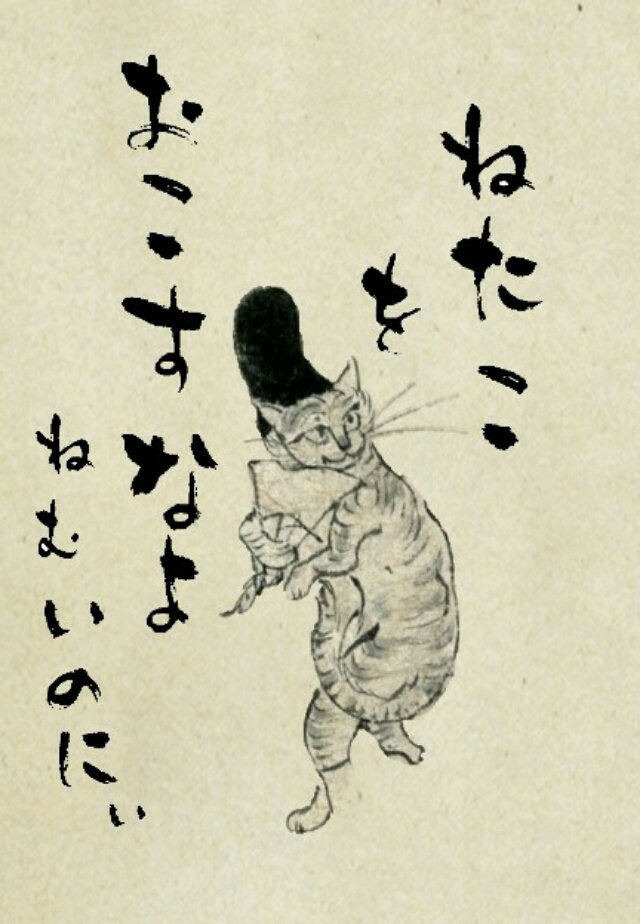 ねたこ
を
おこすなよ
ねむいのにぃ